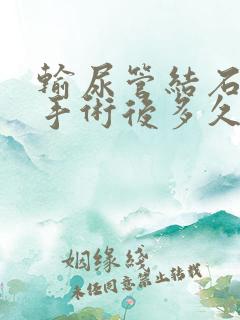 輸尿管結石
手術後多久
姻缘线
未经同意禁止转载